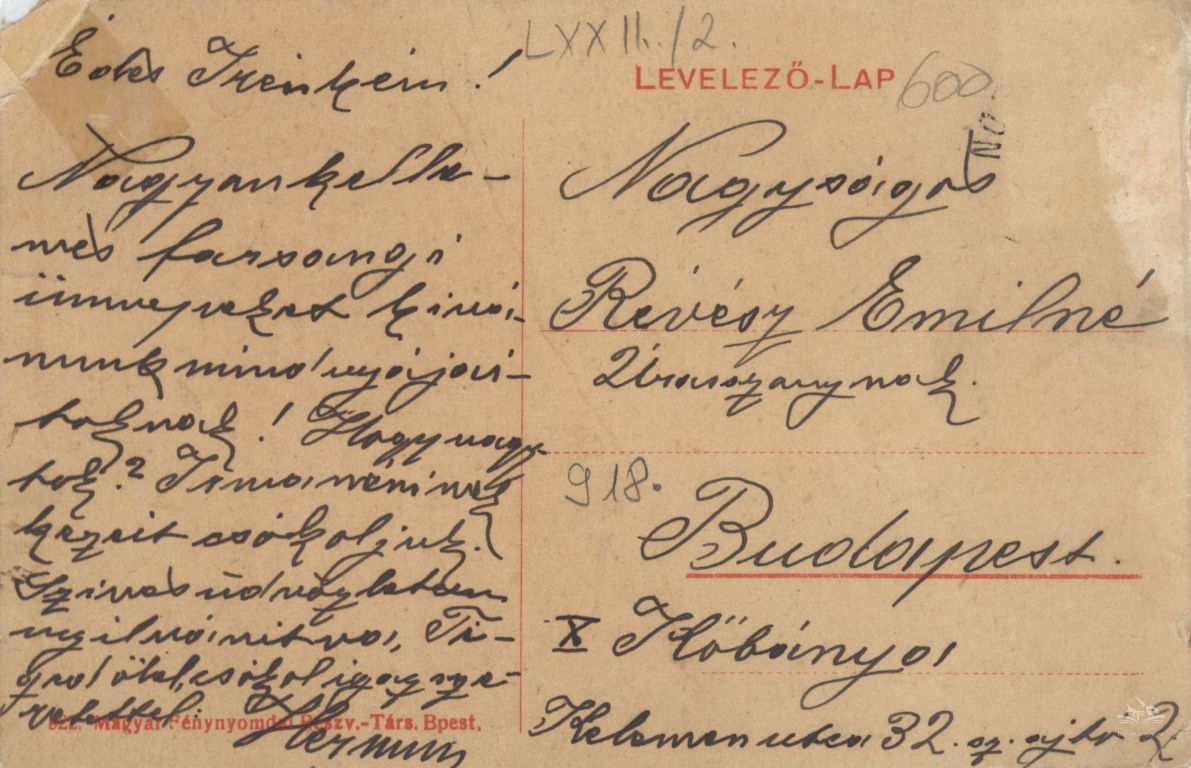 LXXII./2.
LEVELEZŐ-LAP
600
No.
Édes Irénkém!
Nagyon kelle-
mes farsangi
ünnepeket kivá-
nunk mindnyájai-
toknak! Hogy vagy-
tok? Irma néninek
kezeit csókoljuk.
Szives üdvözletem
nyilvánitva, Té-
ged ölel, csókol igaz sze-
retettel:
Hermin
Nagyságos
Révész Emilné
Úrasszonynak.
918.
Budapest.
X Kőbánya
Kelemen utca 32. sz. ajtó 2
522. Magyar Fénynyomdai Részv.-Társ. Bpest.